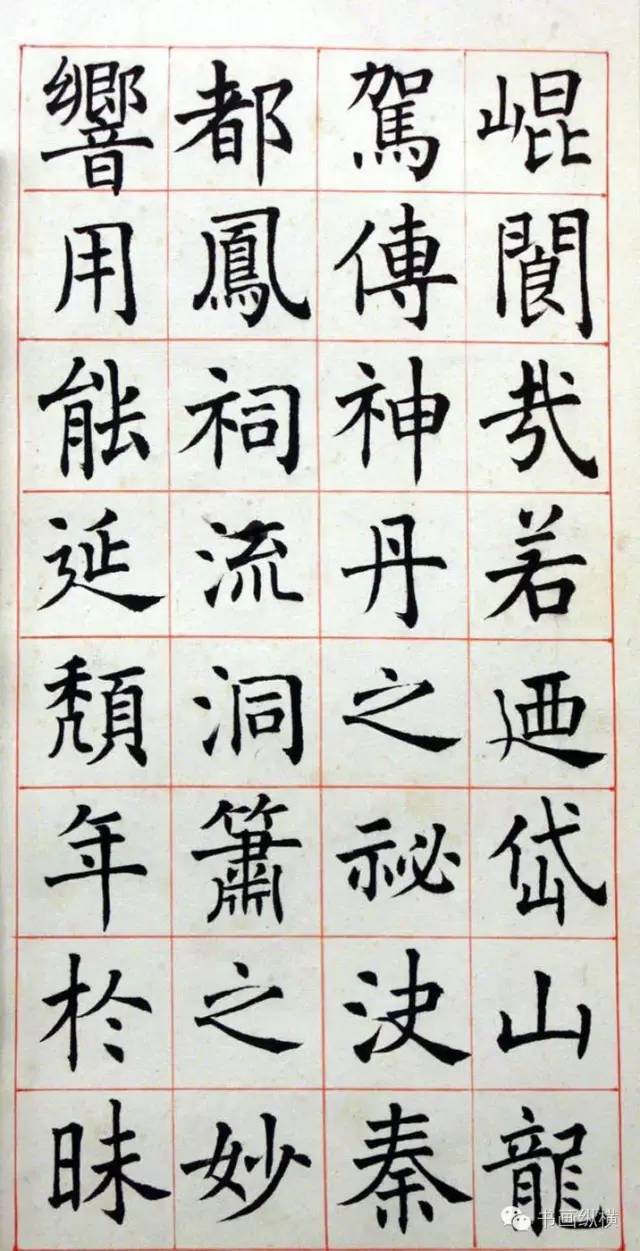 崐閬㢤若廼岱山龍
駕傳神丹之祕決秦
都鳳祠流洞簫之妙
響用能延頽年於昧
书画纵横